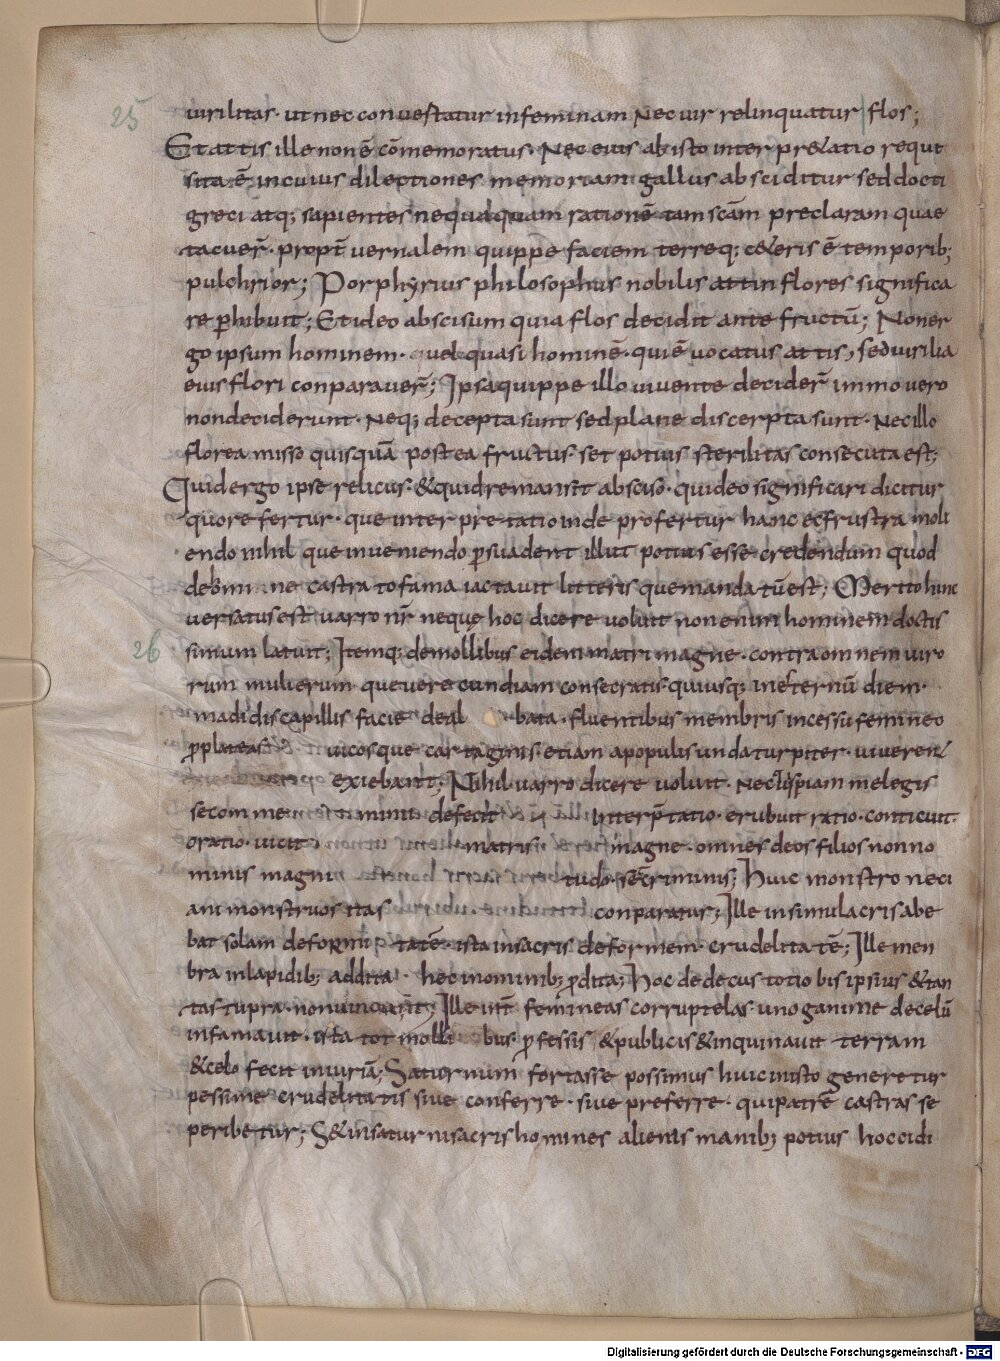 25 uirilitas· ut nec conuestatur in feminam Nec uir relinquatur flos;
Et attis ille non ē cōmemoratus· Nec eius ab isto inter pr&atio requi
sita ē, in cuius dilectiones memoriam gallus absciditur sed docti
greci atq; sapientes nequaquam rationē tam scām preclaram quae
tacuer̄· propt̄ uernalem quippe faciem terreq; c&eris ē temporib;
pulchrior; Porphyrius philosophus nobilis attin flores significa
re phibuit; Et ideo abscisum quia flos decidit ante fructū; Non er
go ipsum hominem· uel quasi hominē· qui ē uocatus attis, sed uirilia
eius flori conparauer̄; Ipsa quippe illo uiuente decider̄ immo uero
non deciderunt· Neq; decepta sunt sed plane discerpta sunt· Nec illo
florea misso quisquā post ea fructus· set potius sterilitas consecuta est;
Quid ergo ipse relicus· & quid remansit absciso· quid eo significari dicitur
quo refertur· que inter pretatio inde profertur hanc ec frustra moli
endo nihil que inueniendo psuadent illut potius esse credendum quod
de ne castrato fama iactauit litteris que mandatū est; Merito hunc
uersatus est uarro nr̄ neque hoc dicere uoluit non enim hominem doctis
26 simum latuit; Itemq; de mollibus eidem matri magne· contra omnem uiro
rum mulierum que uere cundiam consecratis· qui usq; in esternū diem·
madidis capillis facie deal bata· fluentibus membris incessu femineo
p plateas uicosque cartaginis etiam a populis unda turpiter· uiueren&
exiebant; Nihil uarro dicere uoluit· Nec uspiam me legis
se com me mini defecit Interp̄tatio· erubuit ratio· conticuit·
oratio· uicit matris magne· omnes deos filios non no
minis magni tudo· sed criminis; Huic monstro nec i
ani monstruositas conparatur; Ille in simulacris abe
bat solam deformi tatē· ista in sacris deformem· crudelitatē; Ille men
bra in lapidib; addita· hec in ominib; pdita; Hoc dedecus totiobis ipsius & tan
ta stupra· non uincunt; Ille int̄ femineas corruptelas· uno ganime de celū
infamauit· ista tot molli bus· pfessis & publicis & inquinauit terram
& celo fecit iniuriā; Saturnum fortasse possimus huic in isto genere tur
pessime crudelitatis siue conferre· siue preferre· qui patrē castrasse
peribetur; S& in saturni sacris homines alienis manib; potius hoccidi
Digitalisierung gefördert durch die Deutsche Forschungsgemeinschaft - DFG